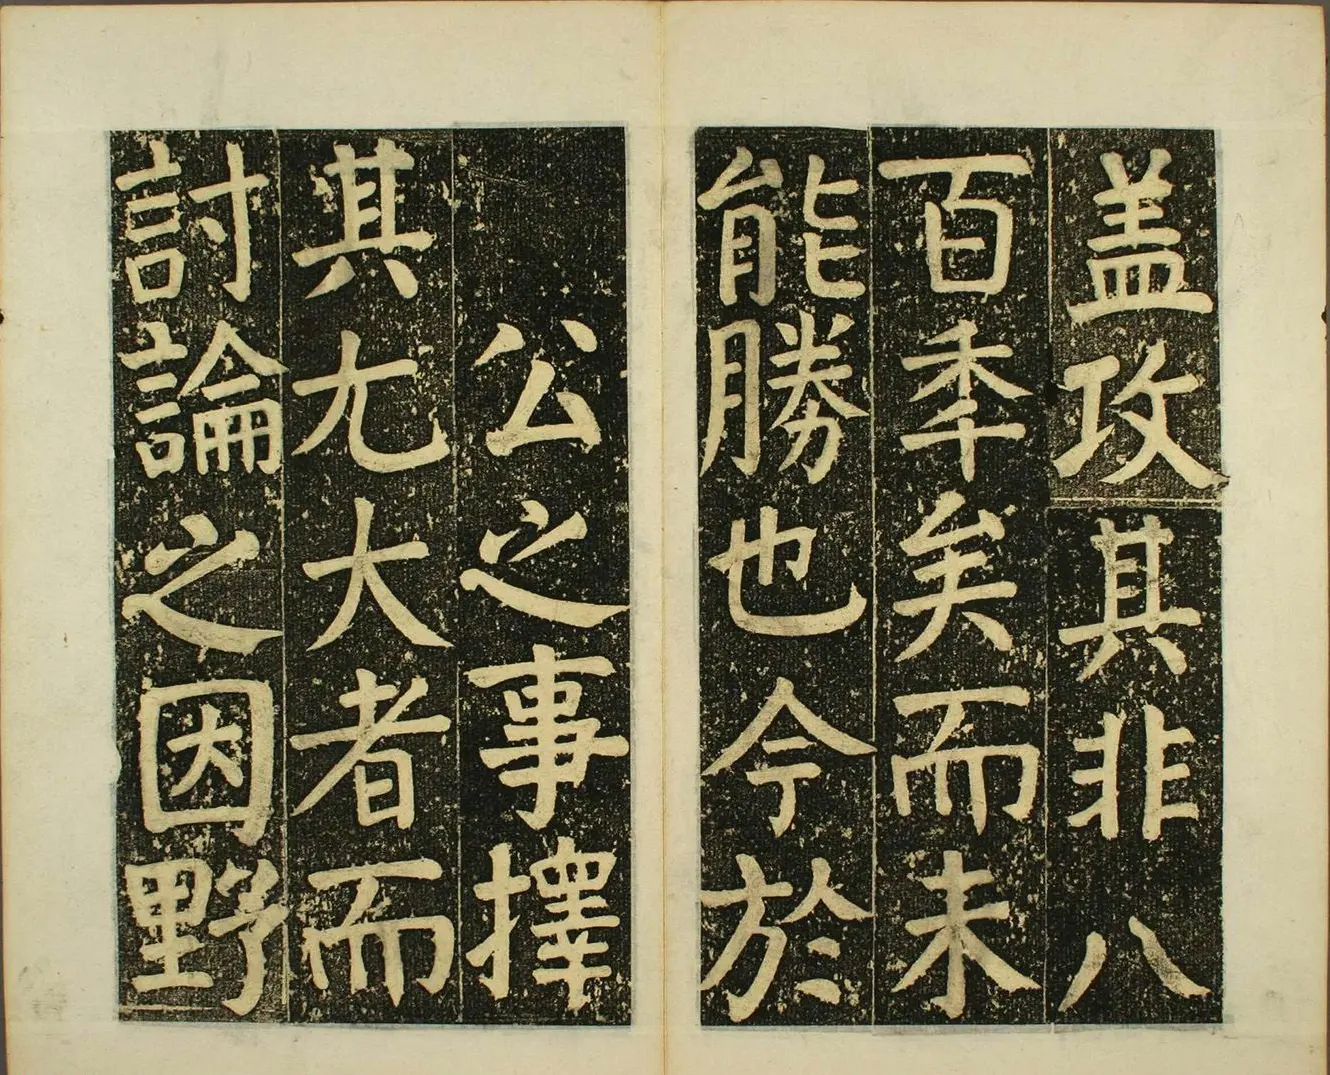 盖攻其非八
百秊矣而未
能勝也今於
公之事擇
其尤大者而
討論之因野